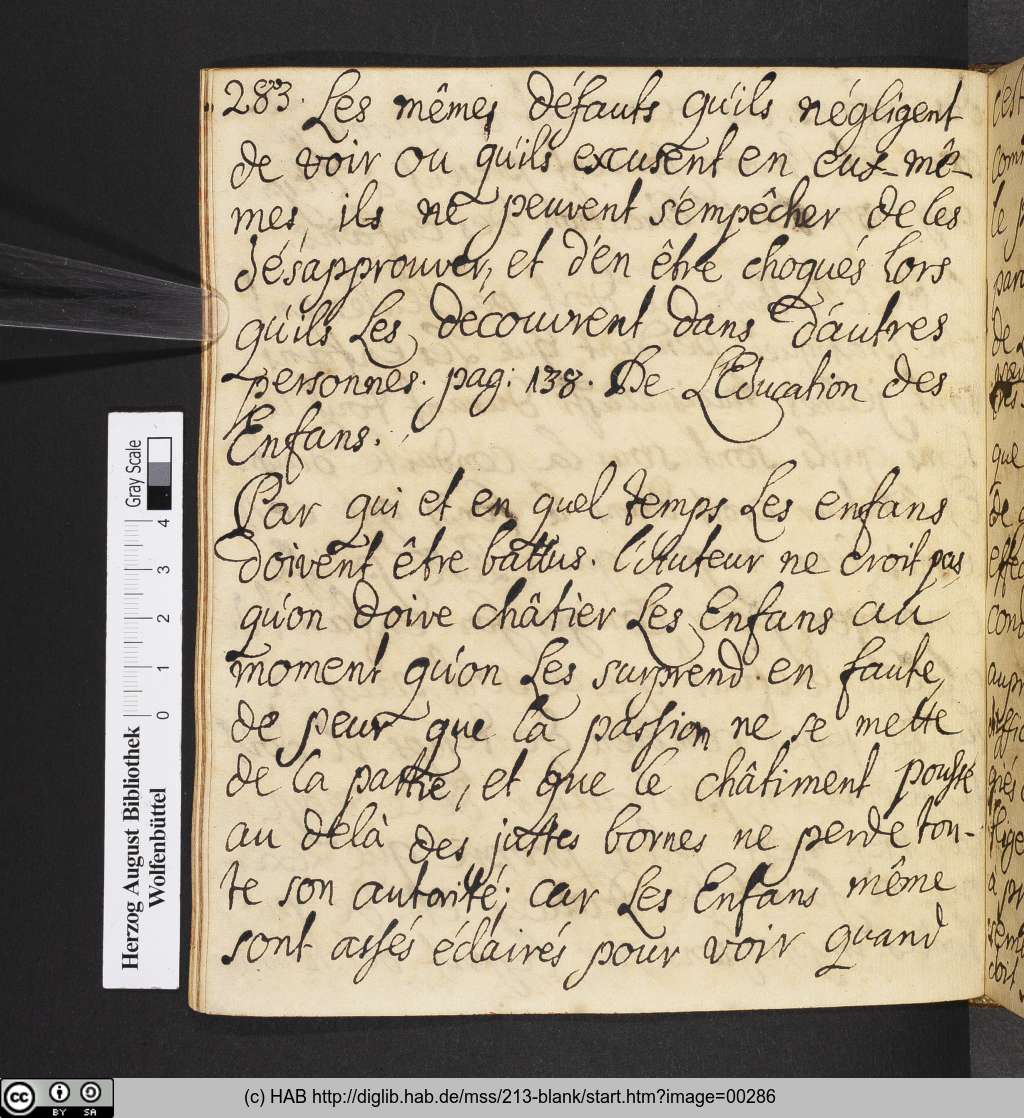 283. Les mêmes défauts qu'ils négligent
de voir ou qu'ils excusent en eux-mê-
mes, ils ne peuvent s'empêcher de les
désapprouver, et d'en être choqués lors
qu'ils les découvrent dans d'autres
personnes. pag: 138. De L'Education des
Enfans.
Par qui et en quel temps Les enfans
doivent être battus. l'Auteur ne croit pas
qu'on doive châtier Les Enfans au
moment qu'on Les surprend en faute,
de peur que la passion ne se mette
de la partie, et que le châtiment poussé
au delà des justes bornes ne perde tou-
te son autorité; car Les Enfans même
sont assés éclairés pour voir quand
Herzog August Bibliothek
Wolfenbüttel
Gray Scale
0 1 2 3 4
(c) HAB http://diglib.hab.de/mss/213-blank/start.htm?image=00286
cc BY SA